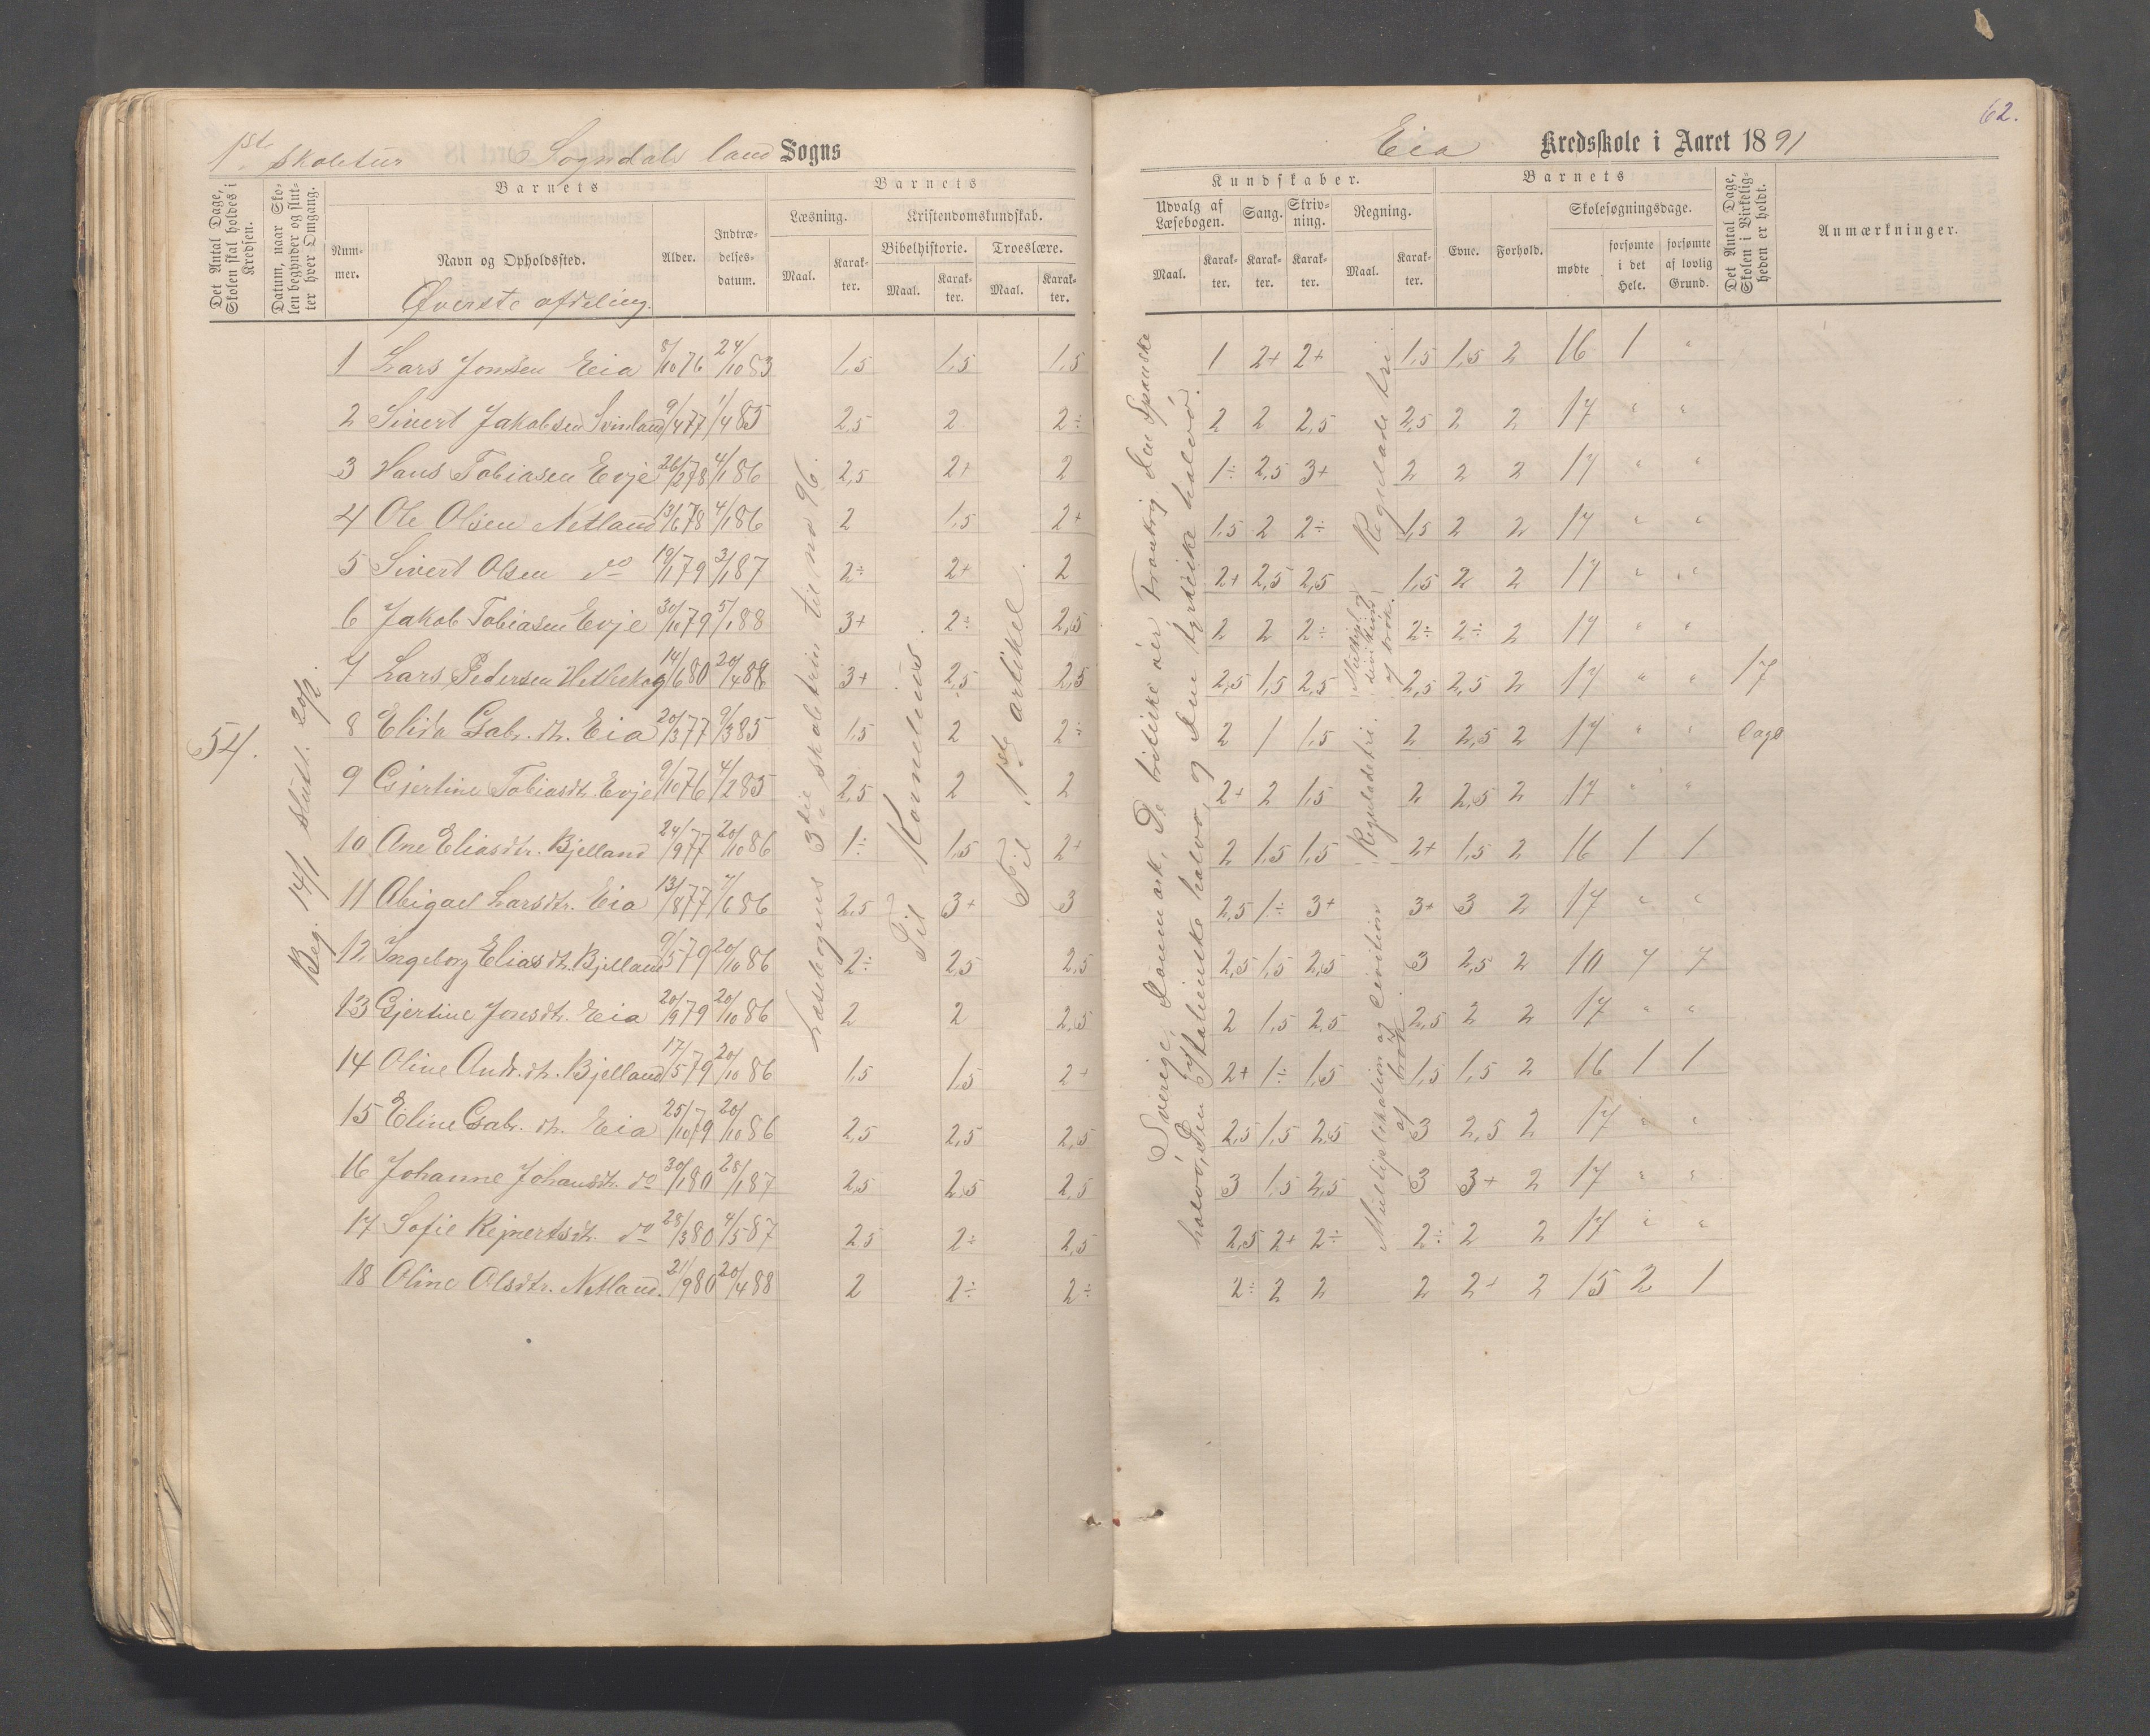 62.
1ste skoletur Sogndals land Sogns
Eia Kredsskole i Aaret 1891
Det Antal Dage, Skolen skal holdes i Kredsen.
Datum, naar Skolen begynder og slutter hver Omgang.
Nummer.
Barnets
Navn og Opholdssted.
Alder.
Indtrædelsesdatum.
Barnets
Læsning.
Kristendomskundskab.
Bibelhistorie.
Troeslære.
Maal. Karakter. Maal. Karakter. Maal. Karakter.
Kundskaber.
Udvalg af Læsebogen.
Sang.
Skrivning.
Regning.
Maal. Karakter. Karakter. Karakter. Maal. Karakter.
Barnets
Evne.
Forhold.
Skolesøgningsdage.
mødte
forsømte i det Hele.
forsømte af lovlig Grund.
Det Antal Dage, Skolen i Virkeligheden er holdt.
Anmærkninger.
Øverste afdeling.
54.
Beg. 14/1 slutt. 20/2.
Læsebogens 3die skoletrin til no 96.
Til Kornelius.
Til 1ste artikel.
Sverige, Danmark, De britiske øer Frankrig den Spanske
halvø, Den Italienske halvø, og Den tyrkiske halvø.
Reguladetri
Multipl. og division af brøk.
Reguladetri.
Multiplikation og division af brøk
1 Lars Jonsen Eia 8/10 76 24/10 83 1,5 1,5 1,5 1 2+ 2+ 1,5 1,5 2 16 1 "
2 Sivert Jakobsen Svinland 9/4 77 1/4 85 2,5 2 2÷ 2 2 2,5 2,5 2 2 17 " "
3 Hans Tobiasen Evje 26/2 78 4/1 86 2,5 2+ 2 1÷ 2,5 3+ 2 2 2 17 " "
4 Ole Olsen Netland 13/6 78 4/1 86 2 1,5 2+ 1,5 2 2÷ 1,5 2 2 17 " "
5 Sivert Olsen do 19/1 79 3/1 87 2÷ 2+ 2 2+ 2,5 2,5 1,5 2 2 17 " "
6 Jakob Tobiasen Evje 30/10 79 5/1 88 3+ 2÷ 2,5 2 2 2÷ 2÷ 2÷ 2 17 " "
7 Lars Pedersen Hetleskog 14/6 80 20/4 88 3+ 2,5 2,5 2,5 1,5 2,5 2,5 2,5 2 17 " " 17
8 Elida Gabr. dt. Eia 20/3 77 9/3 85 1,5 2 2÷ 2 1 1,5 2 2,5 2 17 " " dage
9 Gjertine Tobiasdt. Evje 9/10 76 4/2 85 2,5 2 2 2+ 2 1,5 2 2,5 2 17 " "
10 Ane Eliasdtr. Bjelland 24/9 77 20/10 86 1÷ 1,5 2+ 2 1,5 1,5 2+ 1,5 2 16 1 1
11 Abigael Larsdtr. Eia 13/8 77 7/6 86 2,5 3+ 3 2,5 1÷ 3+ 3+ 3 2 17 " "
12 Ingeborg Elias dt. Bjelland 9/5 79 20/10 86 2÷ 2,5 2,5 2,5 1,5 2,5 3 2,5 2 10 7 7
13 Gjertine Jonsdt. Eia 20/9 79 20/10 86 2 2 2,5 2 1,5 2,5 2,5 2 2 17 " "
14 Oline Andr. dt. Bjelland 17/5 79 20/10 86 1,5 1,5 2+ 2+ 1÷ 1,5 1,5 1,5 2 16 1 1
15 Eline Gabr. dt. Eia 25/10 79 20/10 86 2,5 2,5 2,5 2,5 1,5 2,5 3 2,5 2 17 " "
16 Johanne Johansdt. do 30/1 80 28/1 87 2,5 2,5 2,5 3 1,5 2,5 3 3+ 2 17 " "
17 Sofie Rejnertsdt. do 28/3 80 4/5 87 2,5 2÷ 2,5 2,5 2+ 2÷ 2÷ 2 2 17 " "
18 Oline Olsdtr. Netland. 21/9 80 20/4 88 2 2÷ 2÷ 2÷ 2 2 2 2+ 2 15 2 1